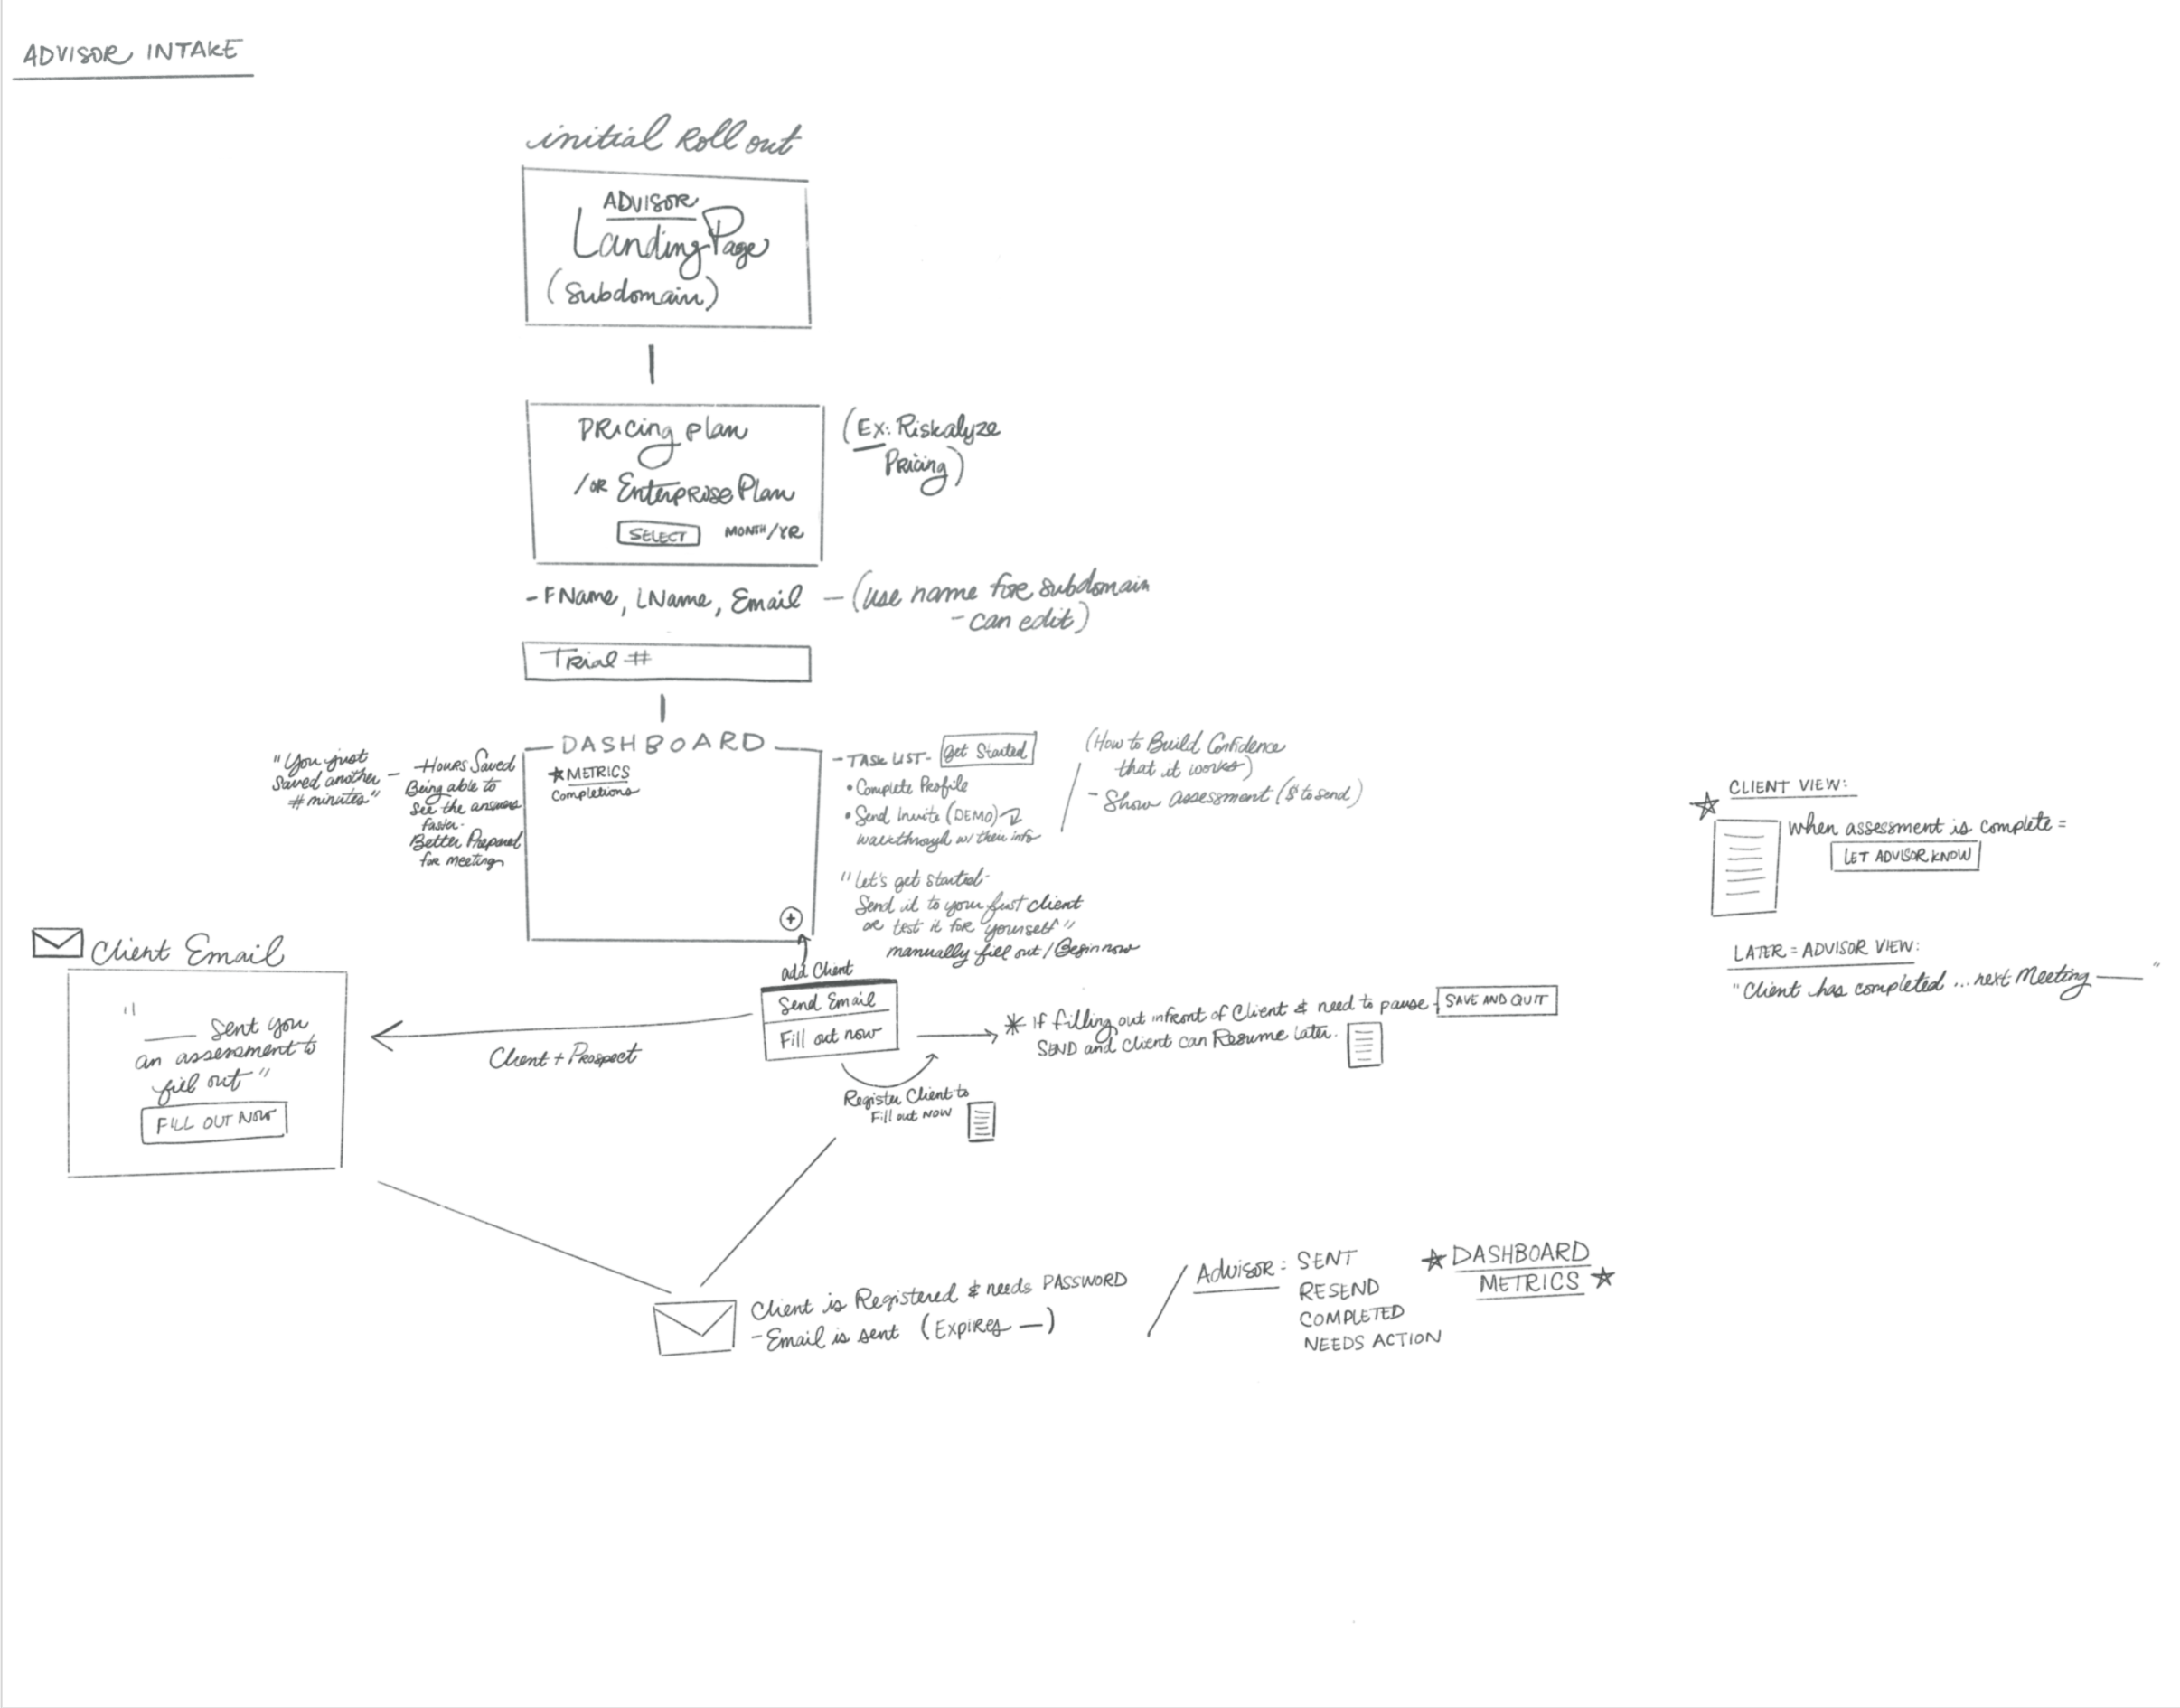 ADVISOR INTAKE
initial Roll out
ADVISOR
Landing Page
(Subdomain)
PRicing plan
/OR Enterprise Plan
SELECT
MONTH/YR
(Ex: Riskalyze
Pricing)
- FName, LName, Email — (use name for subdomain
- can edit)
Trial #
DASHBOARD
★ METRICS
Completions
"You just
Saved another —
# minutes"
Hours Saved
Being able to
See the answers
faster.
Better Prepared
for meeting
- TASK LIST - Get Started
• Complete Profile
• Send Invite (DEMO)
walkthrough w/ their info
(How to Build Confidence
that it works)
- Show assessment ($ to send)
"Let's get started-
Send it to your first client
or test it for yourself"
manually fill out / Begin now
+
add Client
Send Email
Fill out now
Client + Prospect
Client Email
"
____ Sent you
an assessment to
fill out"
FILL OUT NOW
* If filling out infront of Client & need to pause - SAVE AND QUIT
SEND and client can Resume later.
Register Client to
Fill out NOW
Client is Registered & needs PASSWORD
- Email is sent (Expires —)
Advisor: SENT
RESEND
COMPLETED
NEEDS ACTION
★ DASHBOARD
METRICS ★
★ CLIENT VIEW:
when assessment is complete =
LET ADVISOR KNOW
LATER = ADVISOR VIEW:
"Client has completed ... next Meeting ____"